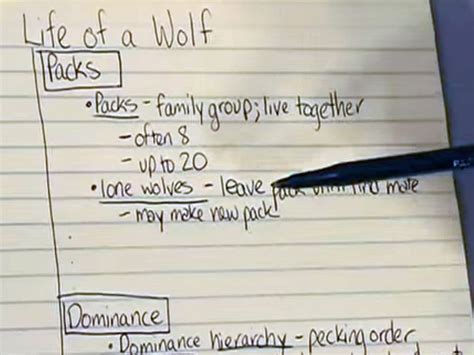 Life of a Wolf
Packs
• Packs - family group; live together
- often 8
- up to 20
• lone wolves - leave pack until find mate
- may make new pack
Dominance
• Dominance hierarchy - pecking order